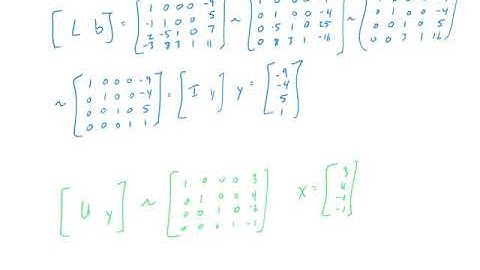 [L b] = [1 0 0 0 -9; -1 1 0 0 5; 2 -5 1 0 7; -3 8 3 1 11] ~ [1 0 0 0 -9; 0 1 0 0 -4; 0 -5 1 0 25; 0 8 3 1 -16] ~ [1 0 0 0 -9; 0 1 0 0 -4; 0 0 1 0 5; 0 0 3 1 16]
~ [1 0 0 0 -9; 0 1 0 0 -4; 0 0 1 0 5; 0 0 0 1 1] = [I y] y = [-9; -4; 5; 1]
[U y] ~ [1 0 0 0 3; 0 1 0 0 4; 0 0 1 0; 0 0 0 1 -1] x = [3; 4; -1]